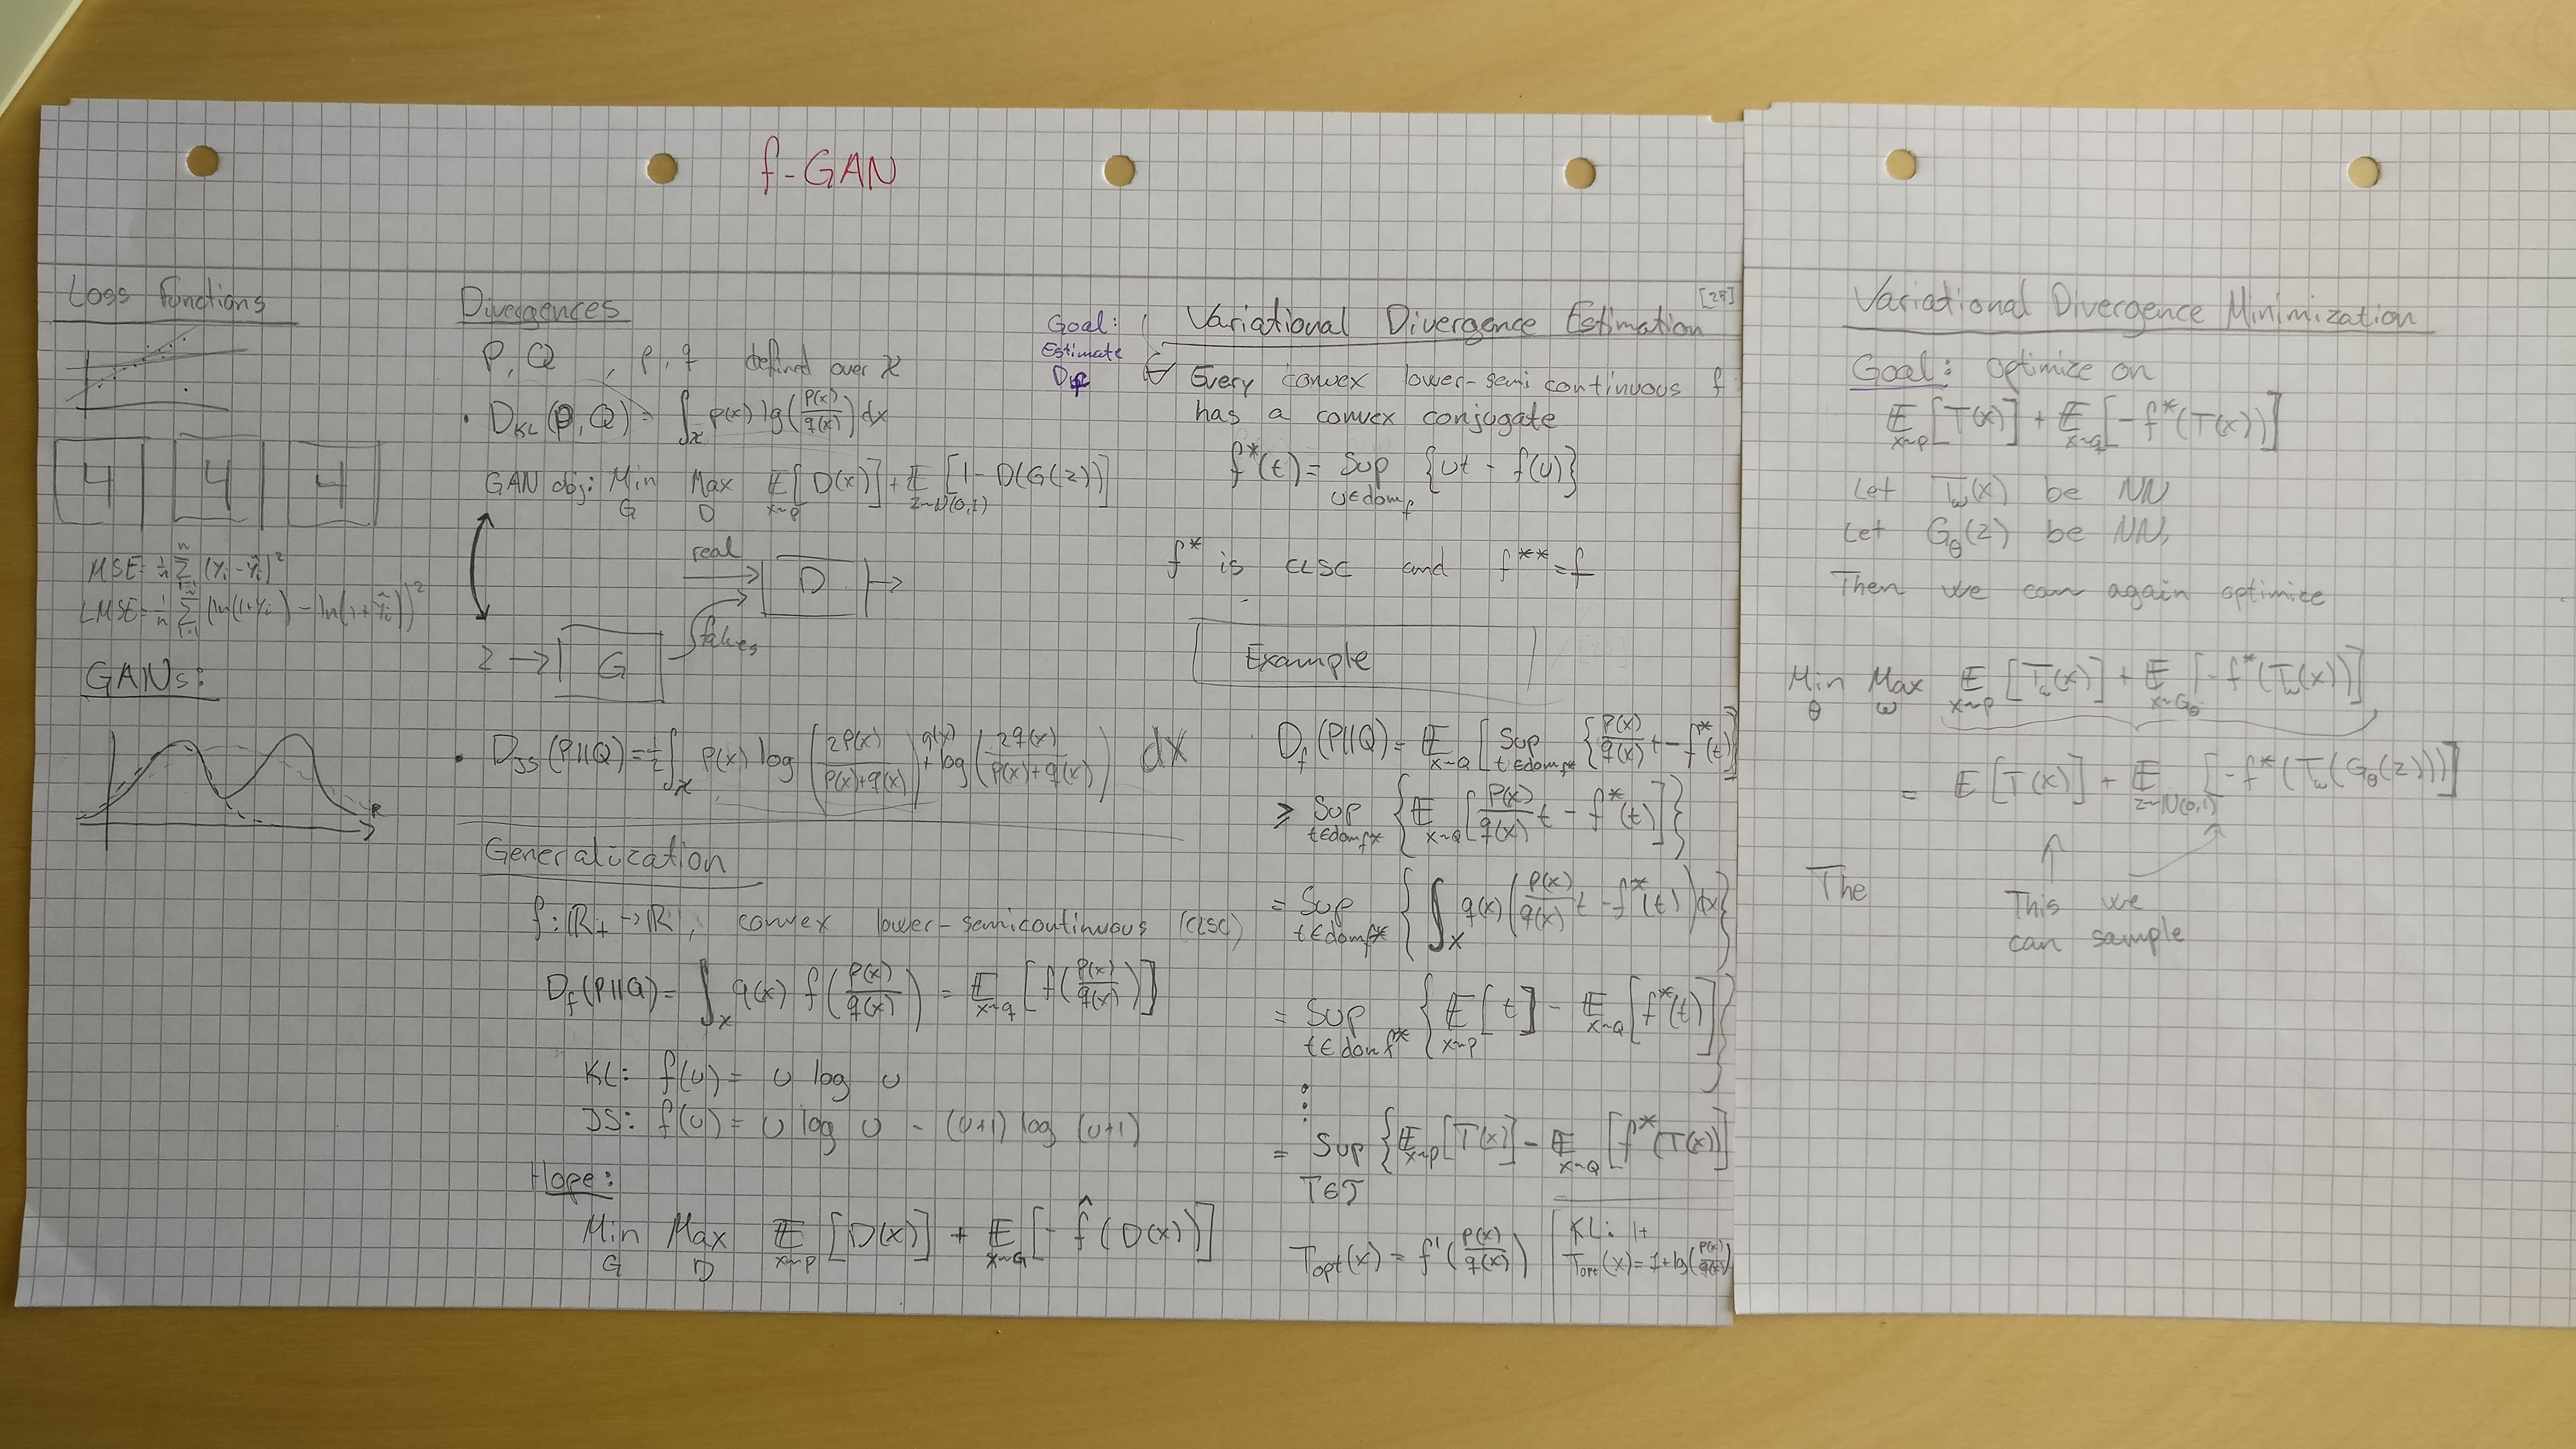 f-GAN
Loss functions
4 4 4
MSE = 1/n Σ_{i=1}^n (Y_i - Ŷ_i)^2
LMSE = 1/n Σ_{i=1}^n (ln(1+Y_i) - ln(1+Ŷ_i))^2
GANs:
R
Divergences
P, Q , p, q defined over X
• D_KL(P, Q) = ∫_X p(x) lg(p(x)/q(x)) dx
GAN obj: Min_G Max_D E_{x~p}[D(x)] + E_{z~N(0,1)}[1 - D(G(z))]
real
D
fakes
z → G
• D_JS(P||Q) = 1/2 ∫_X p(x) log(2p(x)/(p(x)+q(x))) + q(x) log(2q(x)/(p(x)+q(x))) dx
Generalization
f: R_+ → R, convex lower-semicontinuous (CLSC)
D_f(P||Q) = ∫_X q(x) f(p(x)/q(x)) = E_{x~q}[f(p(x)/q(x))]
KL: f(u) = u log u
JS: f(u) = u log u - (u+1) log (u+1)
Hope:
Min_G Max_D E_{x~p}[D(x)] + E_{x~G}[-f̂(D(x))]
Goal:
Estimate
Variational Divergence Estimation [25]
Every convex lower-semi continuous f
has a convex conjugate
f*(t) = Sup_{u∈dom_f} {ut - f(u)}
f* is CLSC and f** = f
Example
D_f(P||Q) = E_{x~Q}[Sup_{t∈dom_f*} {p(x)/q(x) t - f*(t)}]
≥ Sup_{t∈dom_f*} {E_{x~Q}[p(x)/q(x) t - f*(t)]}
= Sup_{t∈dom_f*} {∫_X q(x)(p(x)/q(x) t - f*(t)) dx}
= Sup_{t∈dom_f*} {E_{x~p}[t] - E_{x~Q}[f*(t)]}
⋮
= Sup_{T∈T} {E_{x~p}[T(x)] - E_{x~Q}[f*(T(x))]
T_opt(x) = f'(p(x)/q(x))
KL: 1+
T_opt(x) = 1+lg(p(x)/q(x))
Variational Divergence Minimization
Goal: optimize on
E_{x~p}[T(x)] + E_{x~q}[-f*(T(x))]
Let T_ω(x) be NN
Let G_θ(z) be NN,
Then we can again optimize
Min_θ Max_ω E_{x~p}[T_ω(x)] + E_{x~G_θ}[-f*(T_ω(x))]
= E[T(x)] + E_{z~N(0,1)}[-f*(T_ω(G_θ(z)))]
The
This we
can sample